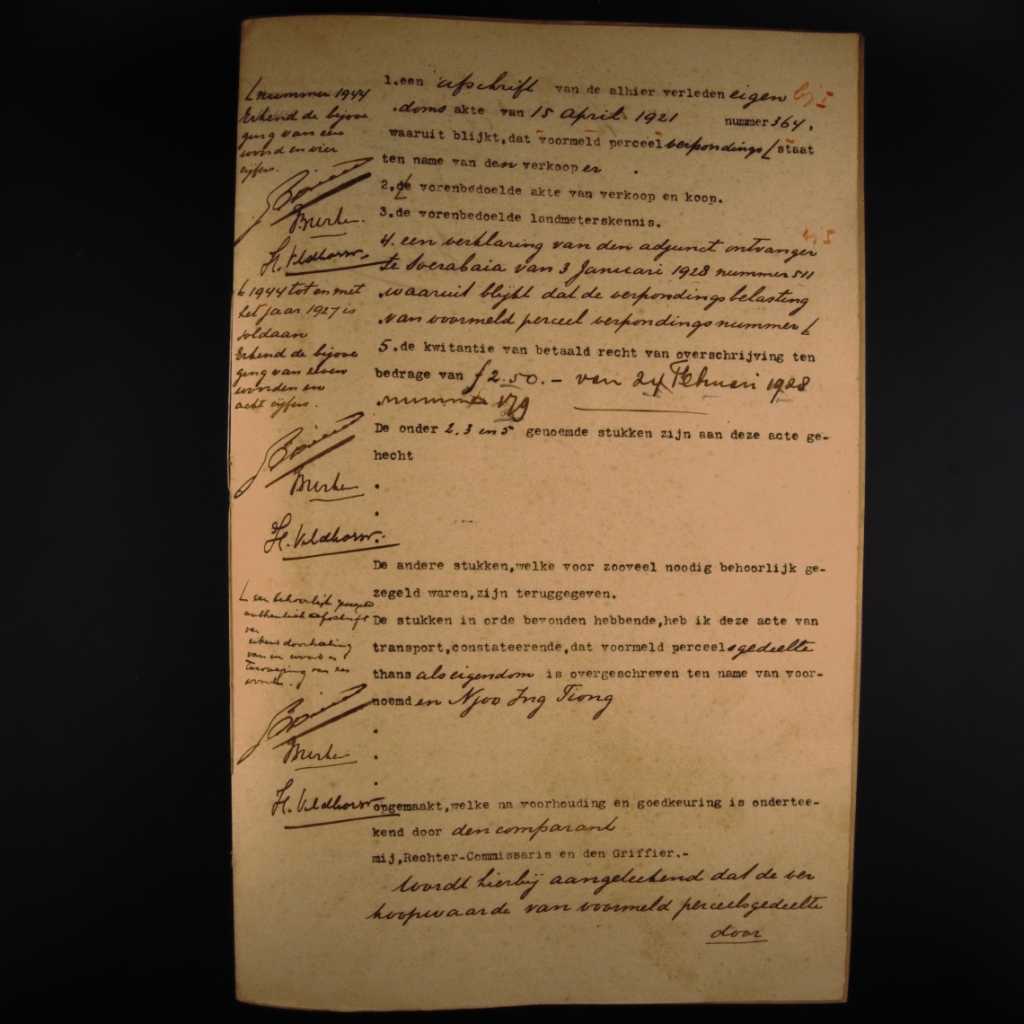 1.een afschrift van de alhier verleden eigen
doms akte van 15 April 1921 nummer 364.
waaruit blijkt,dat voormeld perceel verpondings staat
ten name van den verkooper .
2.de vorenbedoelde akte van verkoop en koop.
3.de vorenbedoelde landmeterskennis.
4. een verklaring van den adjunct ontvanger
te Soerabaia van 3 Januari 1928 nummer 511
waaruit blijkt dat de verpondingsbelasting
van voormeld perceel verpondingsnummer
5.de kwitantie van betaald recht van overschrijving ten
bedrage van f 2.50.- van 24 Februari 1928
nummer 179
De onder 2.3 en 5 genoemde stukken zijn aan deze acte ge-
hecht
De andere stukken,welke voor zooveel noodig behoorlijk ge-
zegeld waren,zijn teruggegeven.
De stukken in orde bevonden hebbende,heb ik deze acte van
transport,constateerende,dat voormeld perceelsgedeelte
thans als eigendom is overgeschreven ten name van voor-
noemden Njoo Ing Tiong
opgemaakt,welke na voorhouding en goedkeuring is onderte-
kend door den comparant
mij,Rechter-Commissaris en den Griffier.-
Wordt hierbij aangeteekend dat de ver
koopwaarde van voormeld perceelsgedeelte
door
nummer 1944
Erkend de bijvoe
ging van een
woord en vier
cijfers.
H. Veldhorst.
1944 tot en met
het jaar 1927 is
voldaan
Erkend de bijvoe
ging van zeven
woorden en
acht cijfers.
H. Veldhorst.
een behoorlijk gezegeld
authentiek afschrift
van
H. Veldhorst